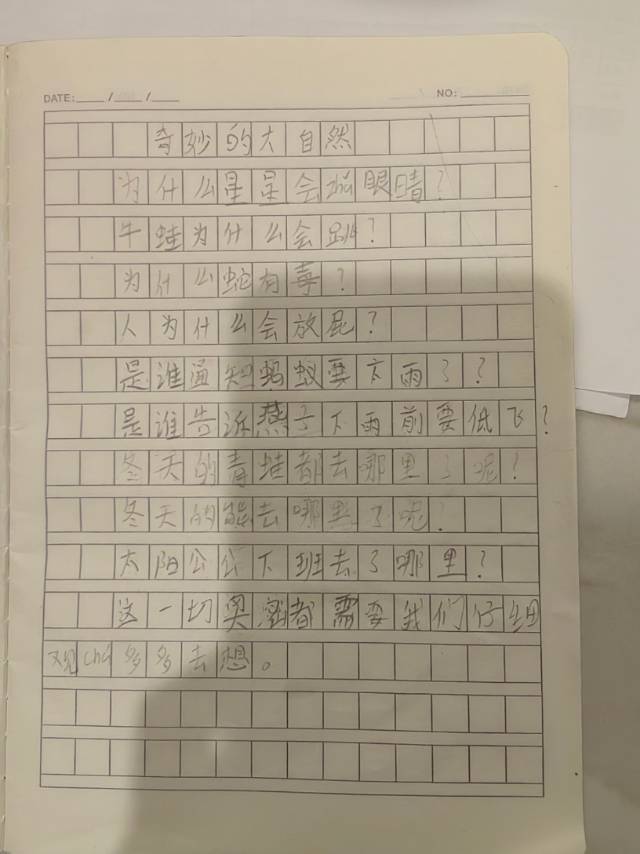 DATE: / /
NO:
奇妙的大自然
为什么星星会眨眼睛?
牛蛙为什么会跳?
为什么蛇有毒?
人为什么会放屁?
是谁通知蚂蚁要下雨了?
是谁告诉燕子下雨前要低飞?
冬天的青蛙都去哪里了呢?
冬天的熊去哪里了呢?
太阳公公下班去了哪里?
这一切奥秘都需要我们仔细
观cha多多去想。